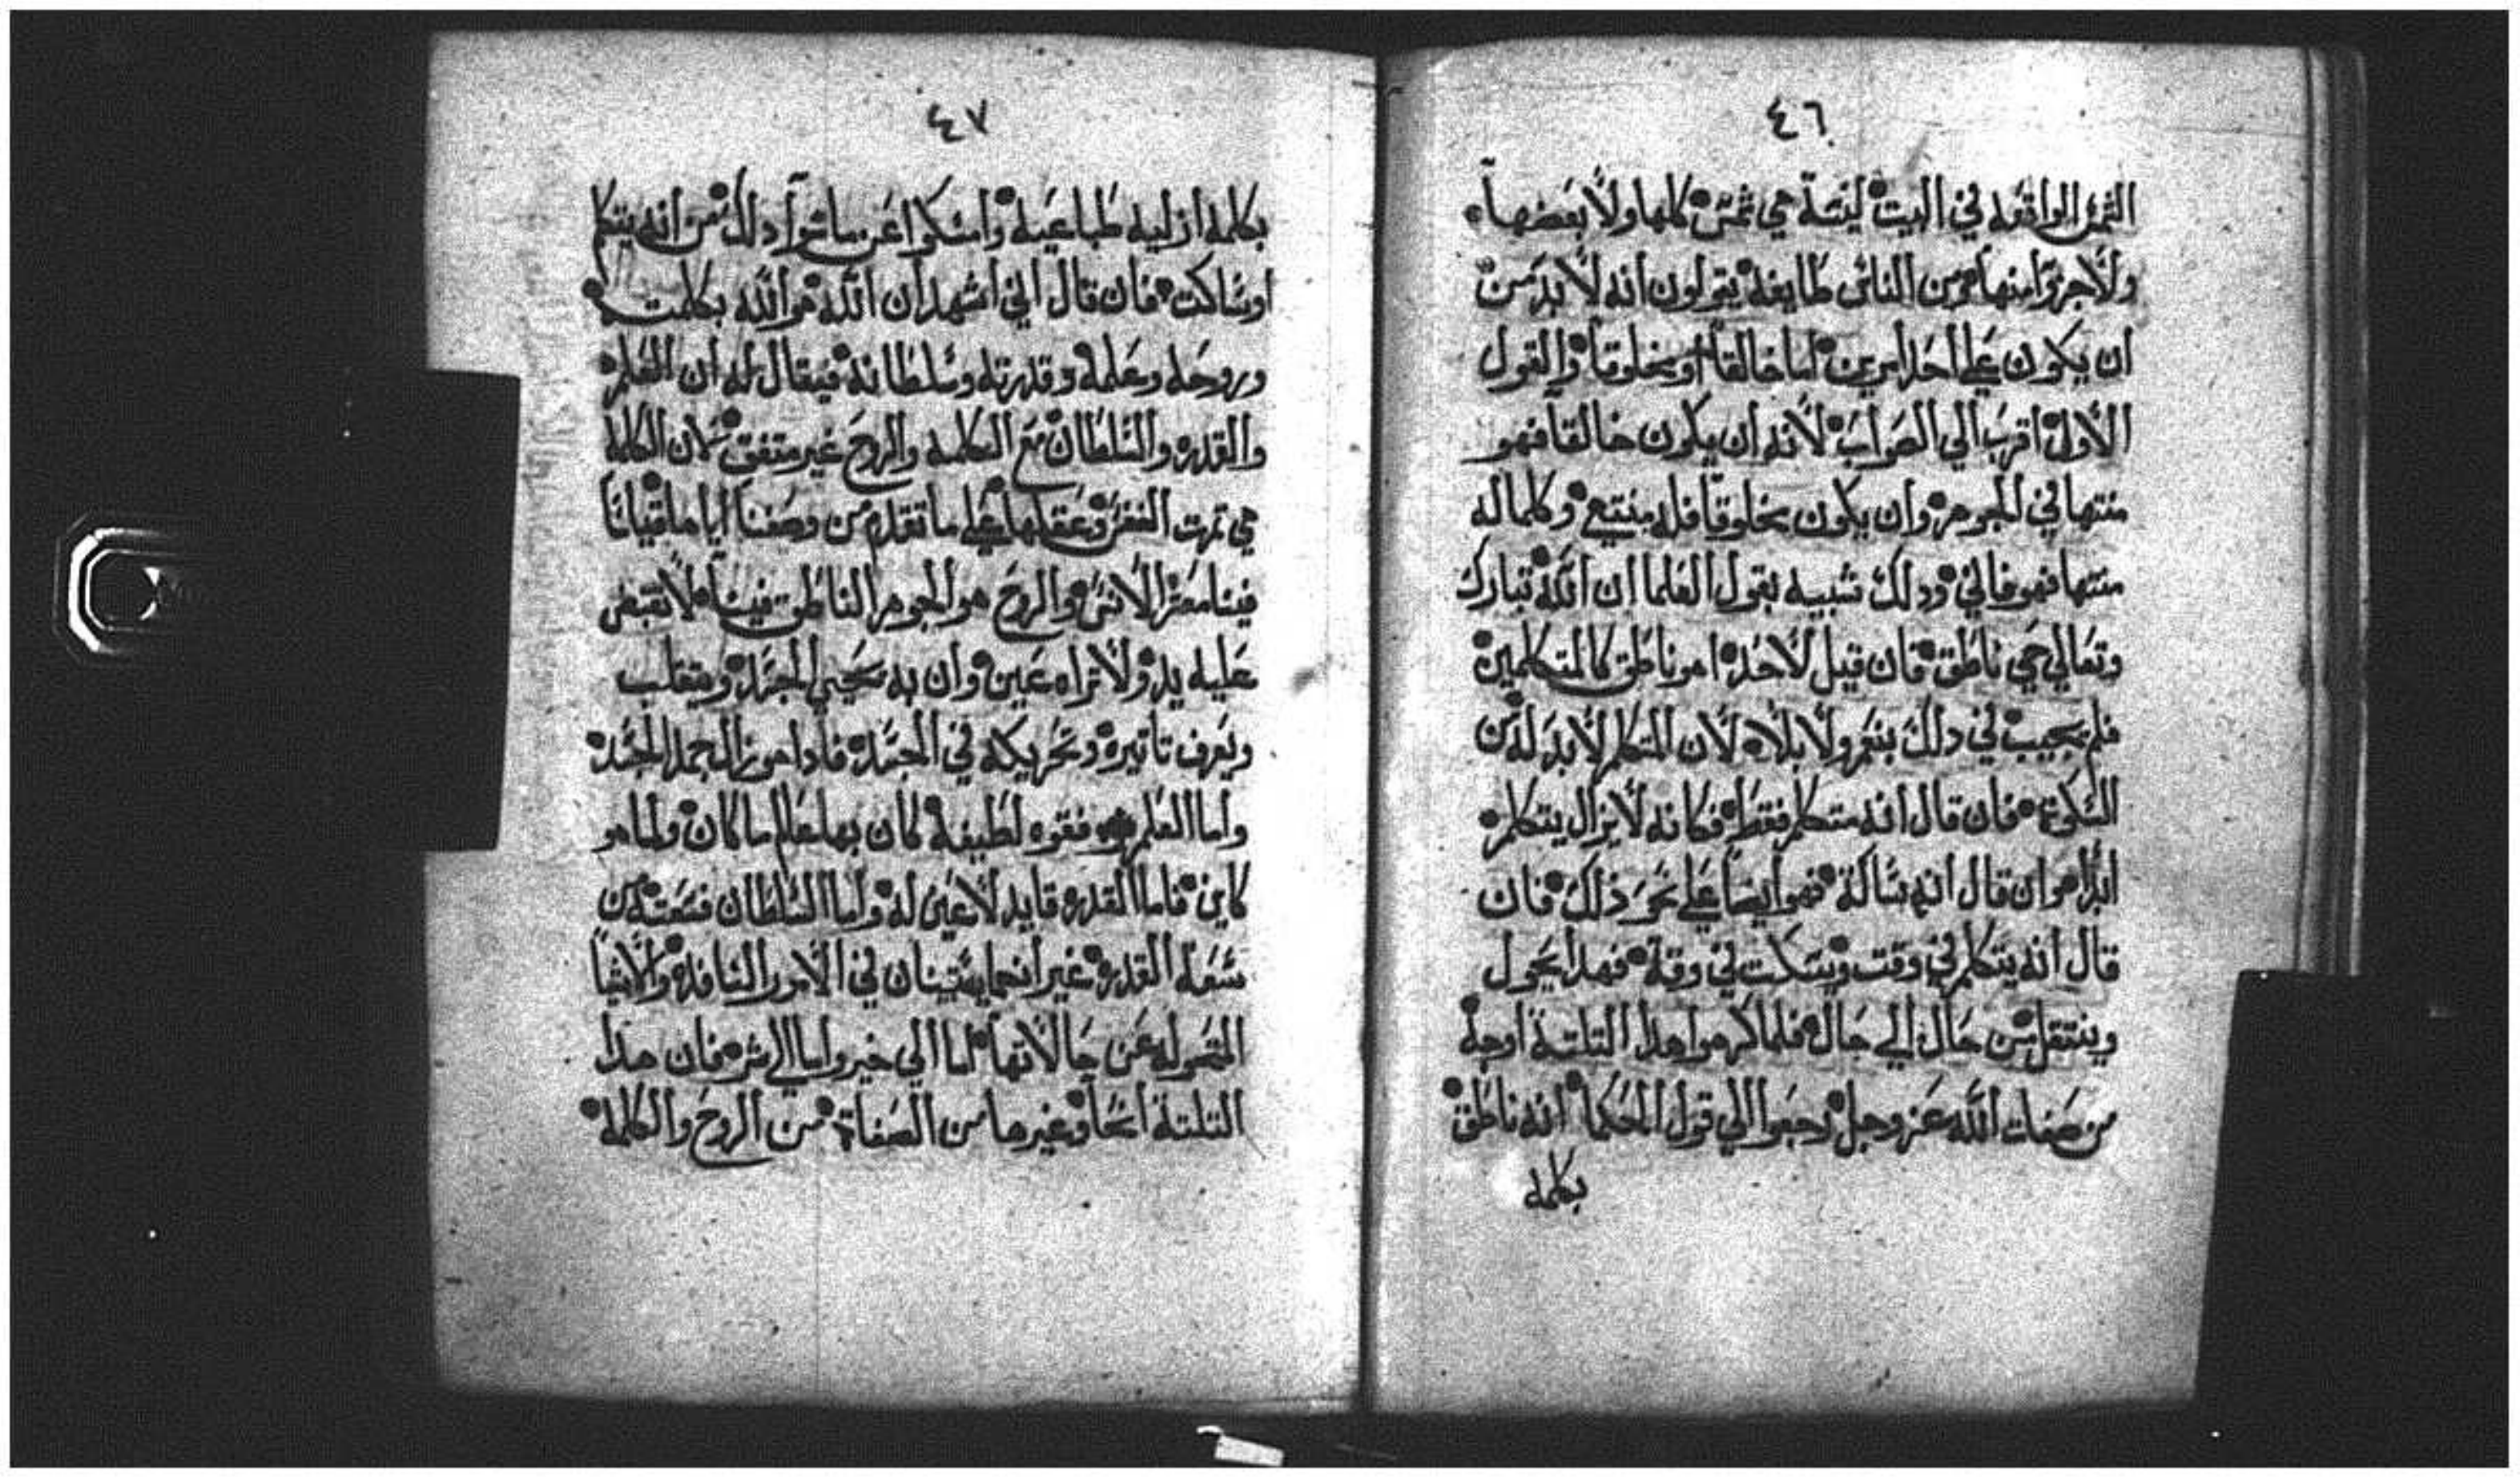 ٤٦
الشمس الواقعه في البيت ليسة هي شمس كلها ولا بعضها
ولا جزؤا منها ومن الناس طايفة يقولون انه لا بد من
ان يكون علي احد امرين اما خالقا او مخلوقا والقول
الاول اقرب الي الصواب لانه ان يكون خالقا فهو
منتها في الجوهر وان يكون مخلوقا فله منتهي وكلما له
منتها فهو فاني ودلك شبيه بقول العلما ان الله تبارك
وتعالي حي ناطق فان قيل لاحد اهو ناطق كالمتكلمين
فلم يجيب في دلك بنعم ولا بلا لان المتكلم لا بد له من
السكوت فان قال انه متكلم فقط فكانه لا يزال يتكلم
ابدا وان قال انه ساكة فهو ايضا علي نحو ذلك فان
قال انه يتكلم في وقت ويسكت في وقة فهدا يحول
وينتقل من حال الي حال فلما كرهوا هدا التلتة اوجة
من صفات الله عز وجل رجعوا الي قول الحكما انه ناطق
بكلمه
٤٧
بكلمه ازليه طباعية وامسكوا عن ما سوا دلك من انه يتكلم
او ساكت فان قال اني اشهد ان الله هو الله بكلمته
وروحه وعلمه وقدرته وسلطانه فيقال له ان العلم
والقدره والسلطان مع الكلمه والروح غير متفق لان الكلمة
هي تمرت النفس وعقلها علي ما تقدم من وصفنا اياها قياسا
فينا معشر الانس والروح هو الجوهر الناطق فينا لا تقبض
عليه يد ولا تراه عين وان به يحيي الجسد ويتقلب
ويعرف تاتيره وتحريكه في الجسد فادا هو زال جمد الجسد
واما العلم فقوه لطيفة كان بها علم ما كان ولما هو
كاين فاما القدره قايد لاعين له واما السلطان فسعته من
سعة القدره غير انهما يستينان في الامور النافده والاشيا
المتحوله عن حالاتها اما الي خير واما الي شر فان هدا
التلتة اسما وغيرها من الصفاة من الروح والكلمة